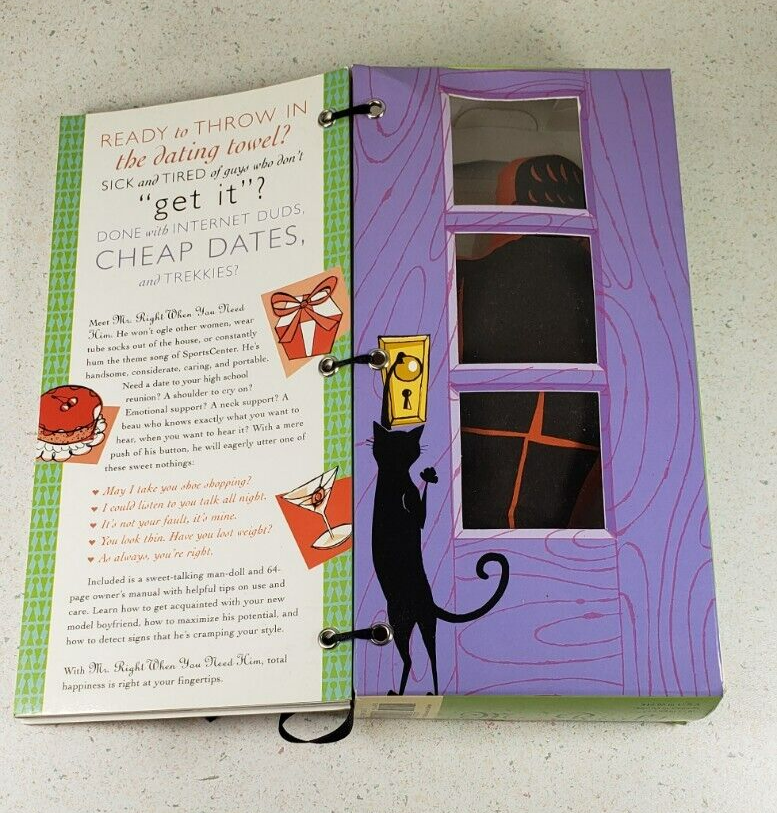 READY to THROW IN
the dating towel?
SICK and TIRED of guys who don't
"get it"?
DONE with INTERNET DUDS,
CHEAP DATES,
and TREKKIES?
Meet Mr. Right When You Need
Him. He won't ogle other women, wear
tube socks out of the house, or constantly
hum the theme song of SportsCenter. He's
handsome, considerate, caring, and portable.
Need a date to your high school
reunion? A shoulder to cry on?
Emotional support? A neck support? A
beau who knows exactly what you want to
hear, when you want to hear it? With a mere
push of his button, he will eagerly utter one of
these sweet nothings:
♥ May I take you shoe shopping?
♥ I could listen to you talk all night.
♥ It's not your fault, it's mine.
♥ You look thin. Have you lost weight?
♥ As always, you're right.
Included is a sweet-talking man-doll and 64-
page owner's manual with helpful tips on use and
care. Learn how to get acquainted with your new
model boyfriend, how to maximize his potential, and
how to detect signs that he's cramping your style.
With Mr. Right When You Need Him, total
happiness is right at your fingertips.